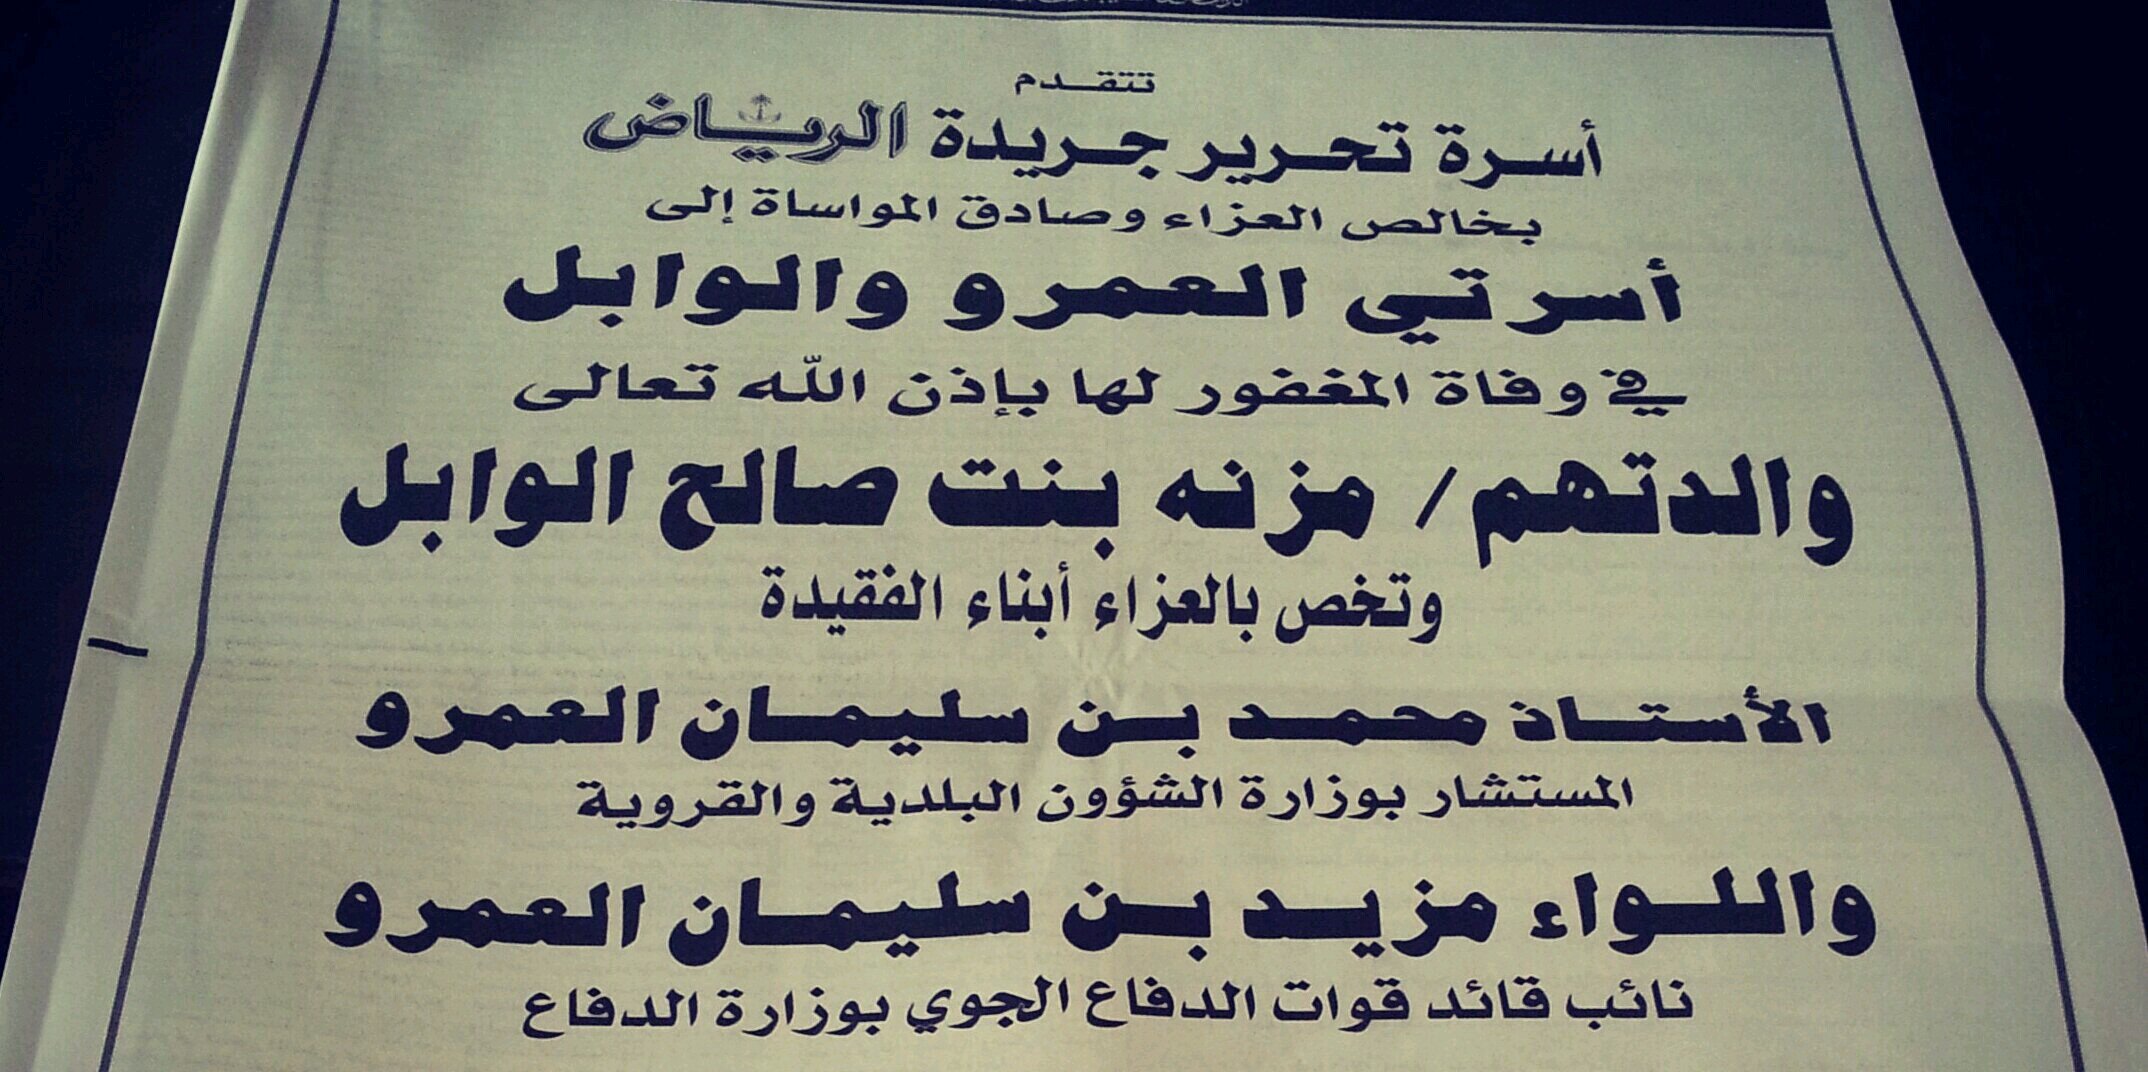 تتقدم
أسرة تحرير جريدة الرياض
بخالص العزاء وصادق المواساة إلى
أسرتي العمرو والوابل
في وفاة المغفور لها بإذن الله تعالى
والدتهم / مزنه بنت صالح الوابل
وتخص بالعزاء أبناء الفقيدة
الأستاذ محمد بن سليمان العمرو
المستشار بوزارة الشؤون البلدية والقروية
واللواء مزيد بن سليمان العمرو
نائب قائد قوات الدفاع الجوي بوزارة الدفاع